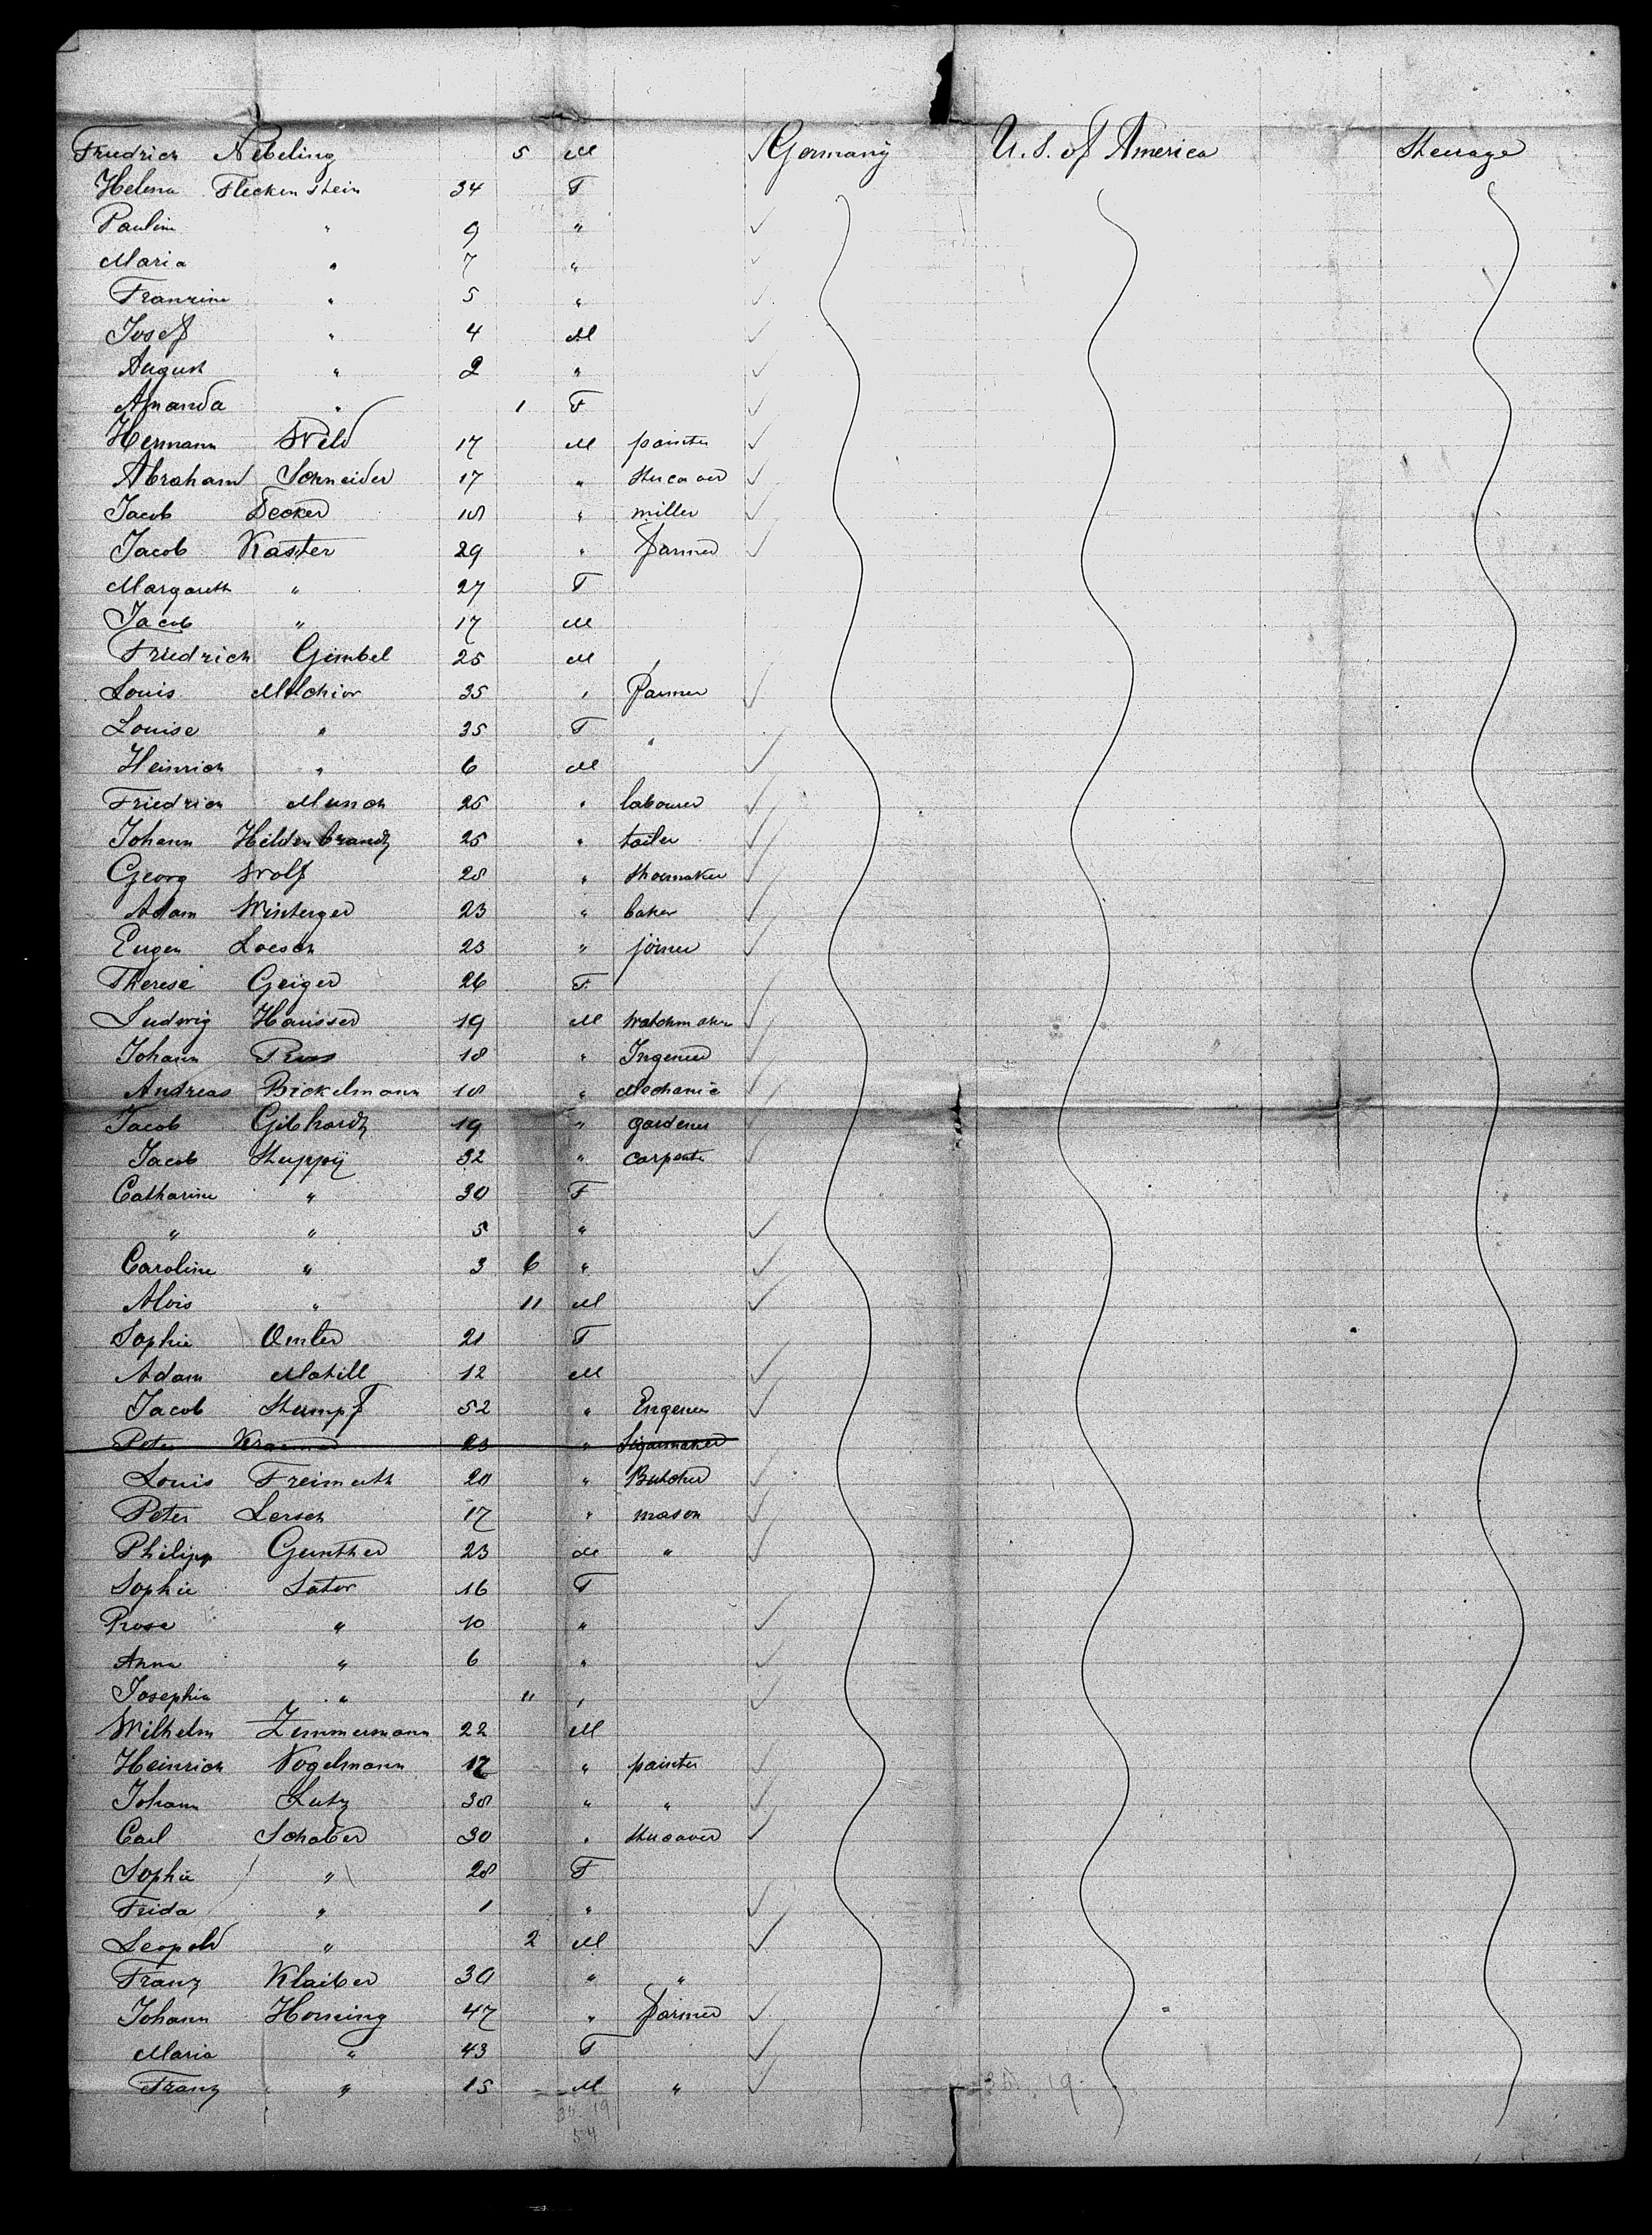 Friedrich Nebeling 5 M Germany U.S. of America Steerage
Helena Fleckenstein 34 F
Paulin " 9 "
Maria " 7 "
Franzine " 5 "
Josef " 4 M
August " 2 "
Amanda " 1 F
Hermann Weld 17 M painter
Abraham Schneider 17 "
Jacob Decker 18 " miller
Jacob Kaster 29 " farmer
Margareth " 27 F
Jacob " 17 M
Friedrich Gimbel 25 M
Louis Melchior 35 " farmer
Louise " 35 F "
Heinrich " 6 M
Friedrich Munch 25 " labourer
Johann Hildenbrandt 25 " tailer
Georg Wolf 28 " Shoemaker
Adam Winterger 23 " baker
Eugen Loesch 23 " joiner
Therese Geiger 26 F
Ludwig Hausser 19 M Watchmaker
Johann 18 " Ingeneer
Andreas Bickelmann 18 " Mechanic
Jacob Gibhardt 19 " gardener
Jacob Stuppy 32 " carpente
Catharine " 30 F
" " 5 "
Caroline " 3 6 "
Alois " 11 M
Sophie Omler 21 F
Adam Matill 12 M
Jacob Stumpf 52 " Engeneer
Peter Kraemer 23 " Sigarmaker
Louis Freimuth 20 " Butcher
Peter Lersch 17 " mason
Philipp Gunther 23 M "
Sophie Sator 16 F
Rosa " 10 "
Anna " 6 "
Josephin " 11 "
Wilhelm Zimmermann 22 M
Heinrich Vogelmann 17 " painter
Johann Lutz 38 " "
Carl Schaber 30 "
Sophie " 28 F
Frida " 1 "
Leopold " 2 M
Franz Klaiber 30 " "
Johann Horneing 47 " farmer
Maria " 43 F
Franz " 15 M "
35 19
54